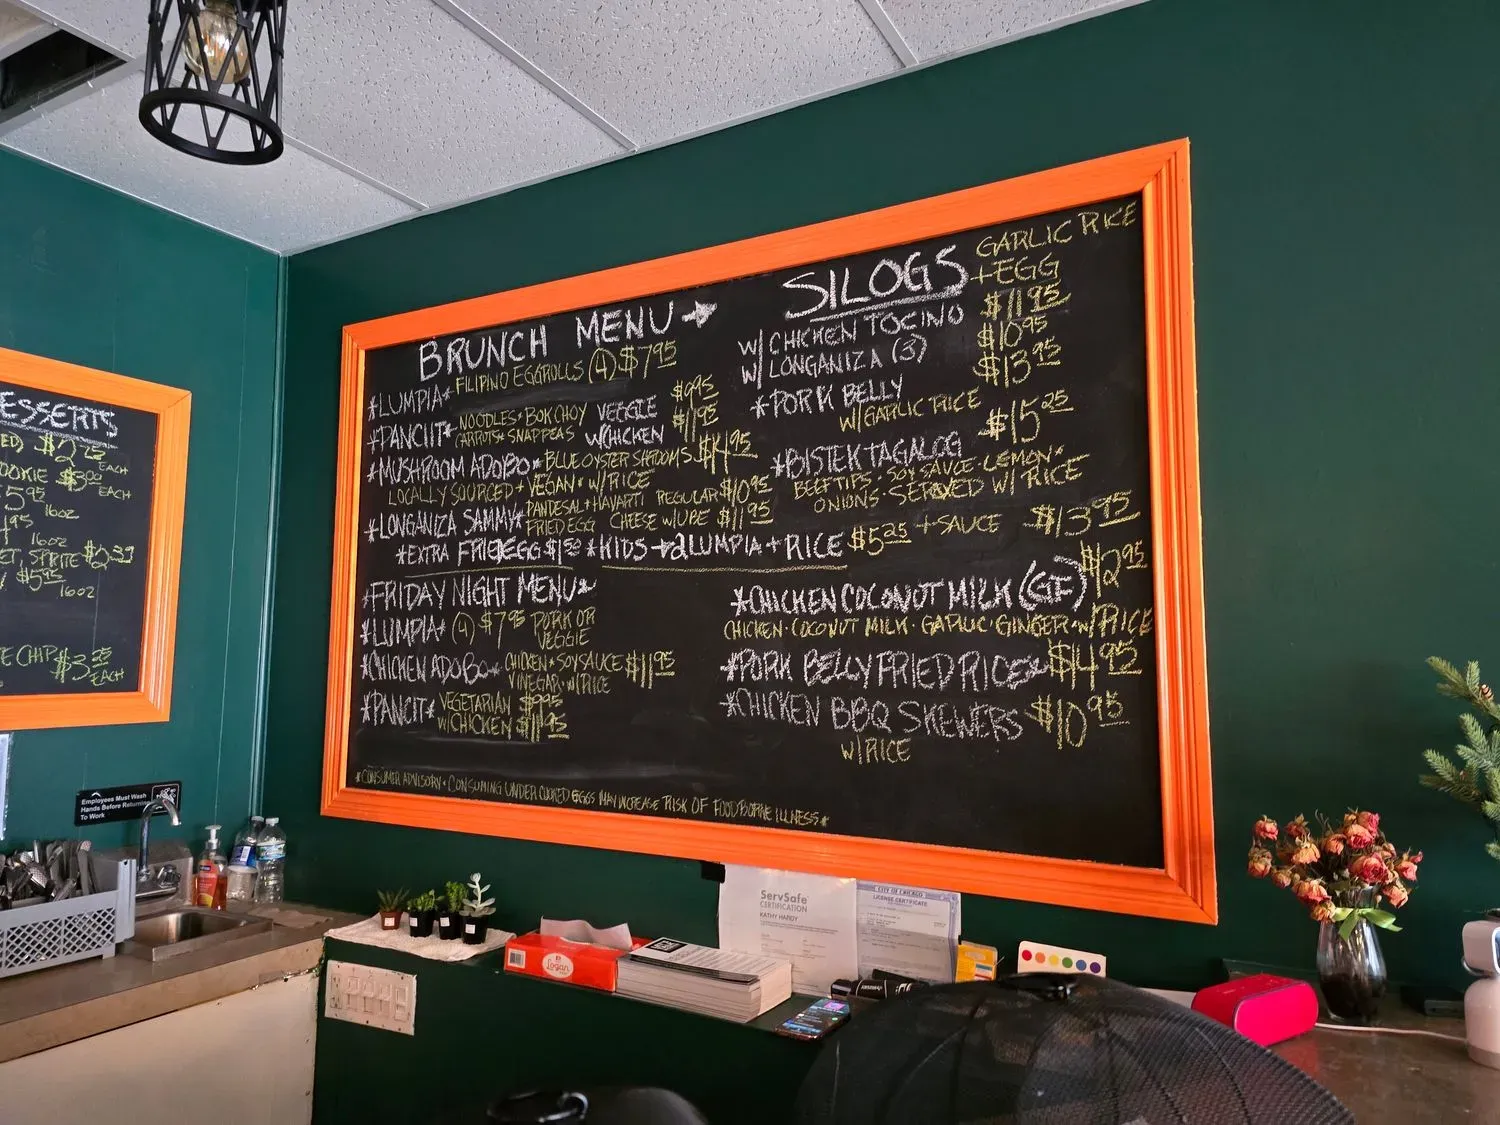 BRUNCH MENU →
*LUMPIA* FILIPINO EGGROLLS (4) $7.95
*PANCIT* NOODLES • BOK CHOY VEGGIE $9.95
CARROTS • SNAP PEAS W/CHICKEN $11.95
*MUSHROOM ADOBO* BLUE OYSTER SHROOMS $14.95
LOCALLY SOURCED + VEGAN * W/RICE
*LONGANIZA SAMMY* PANDESAL + HAVARTI REGULAR $10.95
FRIED EGG CHEESE W/UBE $11.95
*EXTRA FRIED EGG $1.50 *KIDS → 2 LUMPIA + RICE $5.25 + SAUCE
SILOGS GARLIC RICE
+ EGG
W/ CHICKEN TOCINO $11.95
W/ LONGANIZA (3) $10.95
*PORK BELLY $13.95
W/GARLIC RICE
*BISTEK TAGALOG $15.25
BEEF TIPS • SOY SAUCE • LEMON •
ONIONS • SERVED W/ RICE
$13.95
FRIDAY NIGHT MENU
*LUMPIA* (4) $7.95 PORK OR
VEGGIE
*CHICKEN ADOBO* CHICKEN • SOY SAUCE $11.95
VINEGAR • W/RICE
*PANCIT* VEGETARIAN $9.95
W/CHICKEN $11.95
*CHICKEN COCONUT MILK (GF) $12.95
CHICKEN • COCONUT MILK • GARLIC • GINGER • W/RICE
*PORK BELLY FRIED RICE* $14.95
*CHICKEN BBQ SKEWERS $10.95
W/RICE
*CONSUMER ADVISORY • CONSUMING UNDERCOOKED EGGS MAY INCREASE RISK OF FOODBORNE ILLNESS*
ESSERTS
$2.75
EACH
OOKIE $3.00
EACH
5.95
16oz
16oz
ET, SPRITE
$5.95
16oz
E CHIP $3.25
EACH
Employees Must Wash
Hands Before Returning
To Work
ServSafe
CERTIFICATION
KATHY HARDY
CITY OF CHICAGO
LICENSE CERTIFICATE
Logan